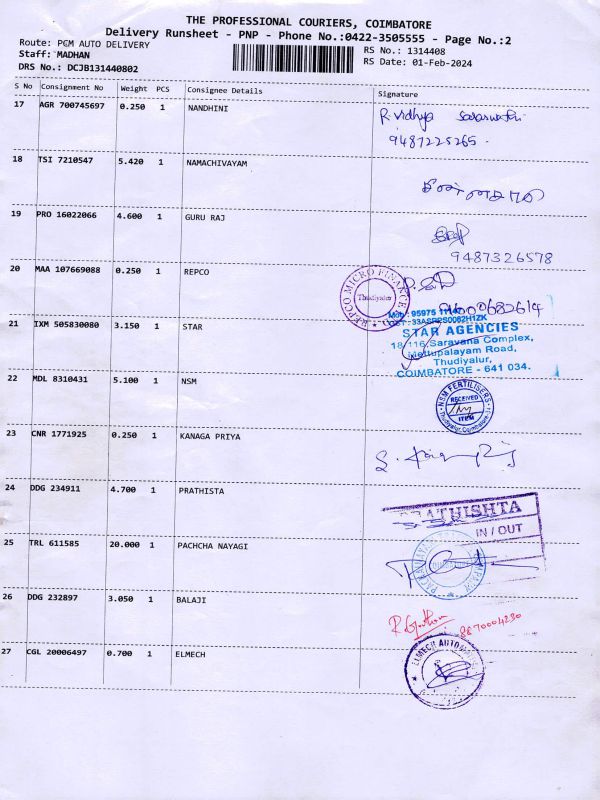 THE PROFESSIONAL COURIERS, COIMBATORE
Delivery Runsheet - PNP - Phone No.:0422-3505555 - Page No.:2
Route: PCM AUTO DELIVERY
RS No.: 1314408
Staff: MADHAN
RS Date: 01-Feb-2024
DRS No.: DCJB131440802
S No Consignment No Weight PCS Consignee Details Signature
17 AGR 700745697 0.250 1 NANDHINI
R. Vidhya Saraswathi
9487225265
18 TSI 7210547 5.420 1 NAMACHIVAYAM
19 PRO 16022066 4.600 1 GURU RAJ
9487326578
20 MAA 107669088 0.250 1 REPCO
REPCO MICRO FINANCE
Thudiyalur
21 IXM 505830080 3.150 1 STAR
STAR AGENCIES
18 116, Saravana Complex,
Mettupalayam Road,
Thudiyalur,
COIMBATORE - 641 034.
22 MDL 8310431 5.100 1 NSM
NSM FERTILISERS
RECEIVED
ITEM
Thudiyalur Coimbatore
23 CNR 1771925 0.250 1 KANAGA PRIYA
24 DDG 234911 4.700 1 PRATHISTA
PRATHISHTA
IN / OUT
25 TRL 611585 20.000 1 PACHCHA NAYAGI
26 DDG 232897 3.050 1 BALAJI
8870004230
27 CGL 20006497 0.700 1 ELMECH